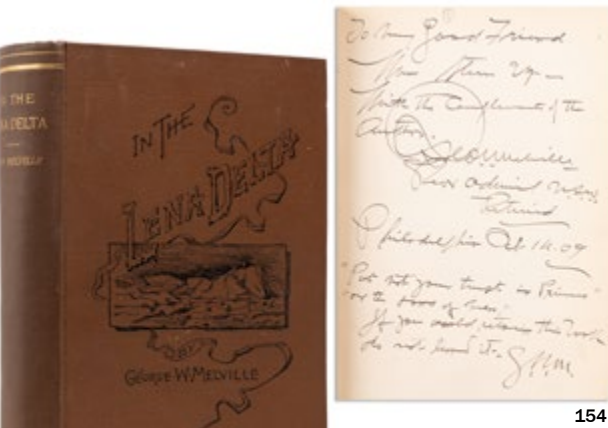 THE
DELTA
MELVILLE
IN THE
LENA DELTA
BY
GEORGE W. MELVILLE
To my Good Friend
With the Compliments of the
Author.
Geo W Melville
Rear Admiral U.S.N.
Retired
Philadelphia 14. 09
"Put not your trust in Princes"
or the sons of Men."
If you would retain this book
do not lend it.
G.W.M.
154